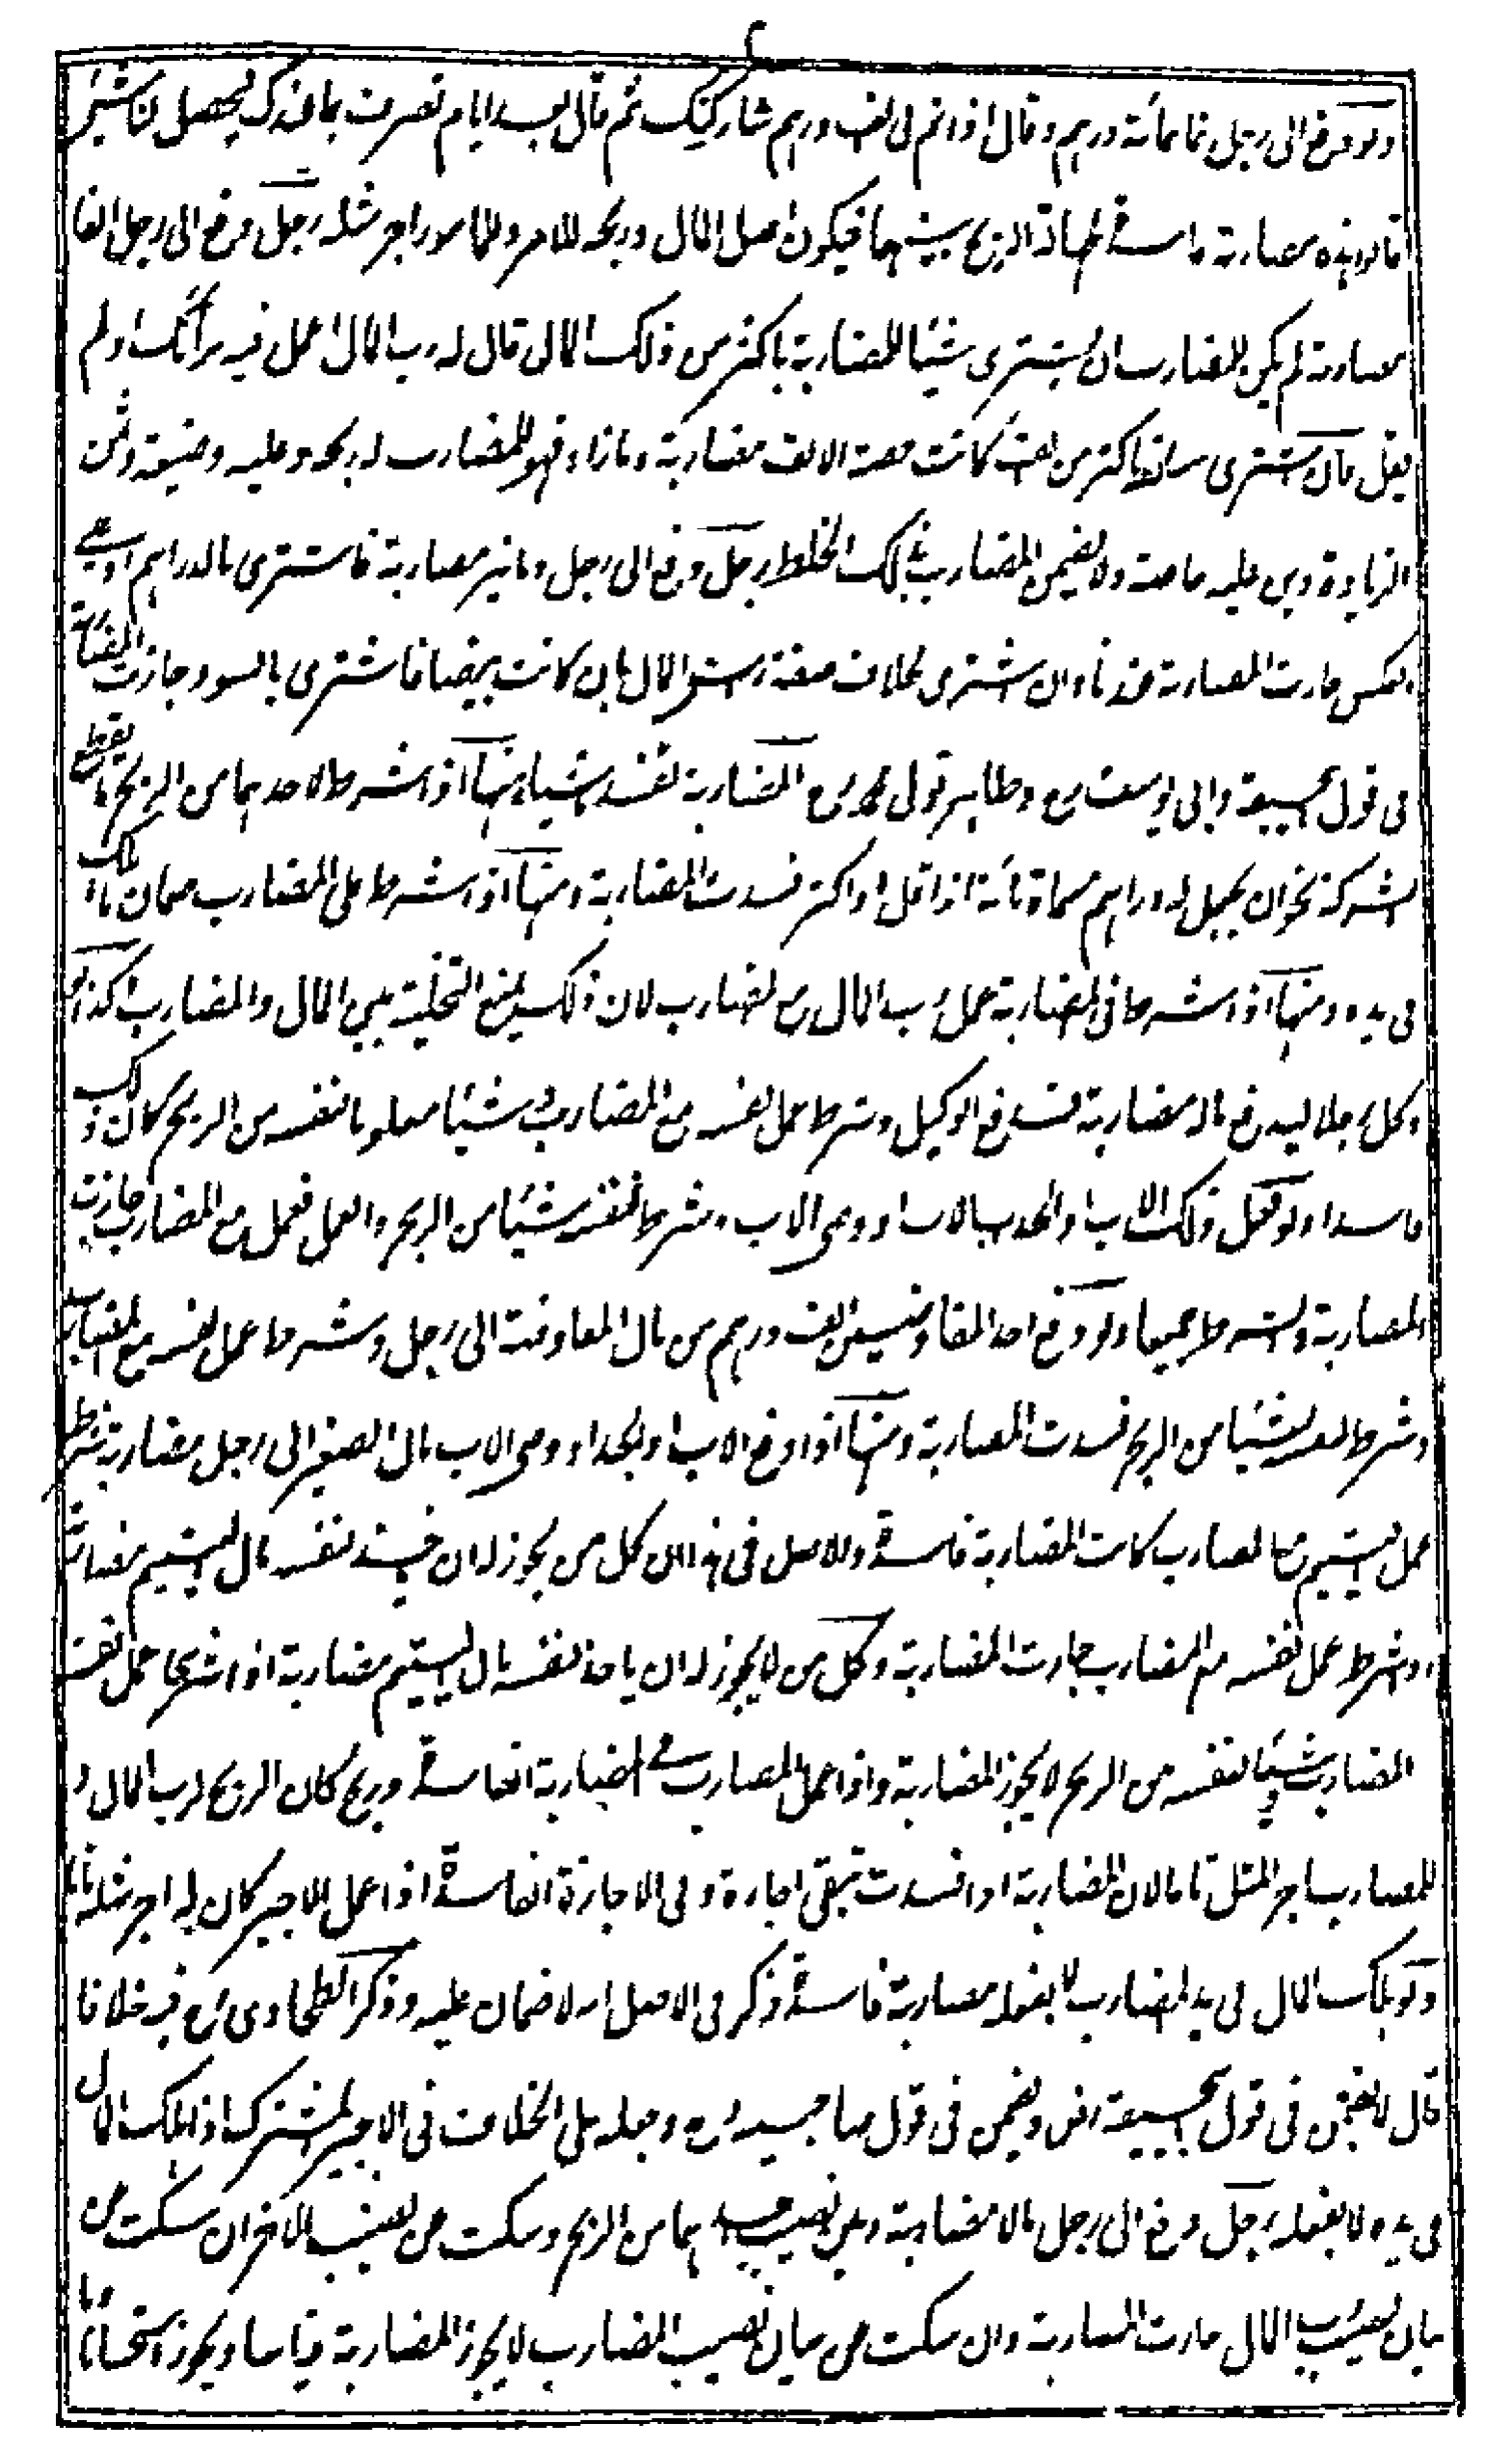 ولو دفع الى رجل ثمانمائة درهم وقال اذا تم لى الف درهم شاركتك ثم قال بعد ايام تصرف بما عندك ليحصل لنا شيئ
قالوا هذه مضاربة فاسدة لجهالة الربح بينهما فيكون اصل المال وربحه للآمر وللمامور اجر مثله رجل دفع الى رجل الفا
مضاربة لم يكن للمضارب ان يشترى شيئا للمضاربة باكثر من ذلك المال قال له رب المال اعمل فيه برأئك او لم
يقل فان اشترى باكثر من الف كانت حصة الالف مضاربة وما زاد فهو للمضارب له ربحه وعليه وضيعته وثمن
الزيادة دين عليه خاصة ولا يضمن المضارب بذلك الخلط رجل دفع الى رجل دنانير مضاربة فاشترى بالدراهم او على
العكس جازت المضاربة عندنا وان اشترى بخلاف صفة راس المال بان كانت بيضا فاشترى بالسود جازت المضاربة
فى قول ابيحنيفة وابى يوسف رح وظاهر قول محمد رح المضاربة تفسد باشياء منها اذا شرط لاحدهما من الربح ما يقطع
الشركة نحو ان يجعل له دراهم مسماة مائة او اقل او اكثر فسدت المضاربة ومنها اذا شرط على المضارب ضمان ما هلك
فى يده ومنها اذا شرطا فى المضاربة عمل رب المال مع المضارب لان ذلك يمنع التخلية بين المال والمضارب وكذا لو
وكل رجلا ليدفع ماله مضاربة فدفع الوكيل وشرط عمل نفسه مع المضارب وشيئا معلوما لنفسه من الربح كان ذلك
فاسدا ولو فعل ذلك الاب او الجد اب الاب او وصى الاب وشرط لنفسه شيئا من الربح والعمل فعمل مع المضارب جازت
المضاربة والشرط جميعا ولو دفع احد المتفاوضين الف درهم من مال المفاوضة الى رجل وشرط عمل نفسه مع المضارب
وشرط لنفسه شيئا من الربح فسدت المضاربة ومنها اذا دفع الاب او الجد او وصى الاب مال الصغير الى رجل مضاربة بشرط
عمل اليتيم مع المضارب كانت المضاربة فاسدة والاصل فى هذا ان كل من يجوز له ان ياخذ لنفسه مال اليتيم مضاربة
اذا شرط عمل نفسه مع المضارب جازت المضاربة وكل من لا يجوز له ان ياخذ لنفسه مال اليتيم مضاربة اذا شرط عمل نفسه مع
المضارب وشيئا لنفسه من الربح لا يجوز المضاربة واذا عمل المضارب فى المضاربة الفاسدة وربح كان الربح لرب المال و
للمضارب اجر المثل تاما لان المضاربة اذا فسدت تبقى اجارة وفى الاجارة الفاسدة اذا عمل الاجير كان له اجر مثله تاما
ولو هلك المال فى يد المضارب لا بفعله مضاربة فاسدة ذكر فى الاصل انه لا ضمان عليه وذكر الطحاوى رح فيه خلافا
قال لا يضمن فى قول ابيحنيفة رض ويضمن فى قول صاحبيه رح وجعله على الخلاف فى الاجير المشترك اذا هلك المال
فى يده لا بفعله رجل دفع الى رجل مالا مضاربة وبين نصيب احدهما من الربح وسكت عن نصيب الآخر ان سكت عن
بيان نصيب رب المال جازت المضاربة وان سكت عن بيان نصيب المضارب لا يجوز المضاربة قياسا ويجوز استحسانا